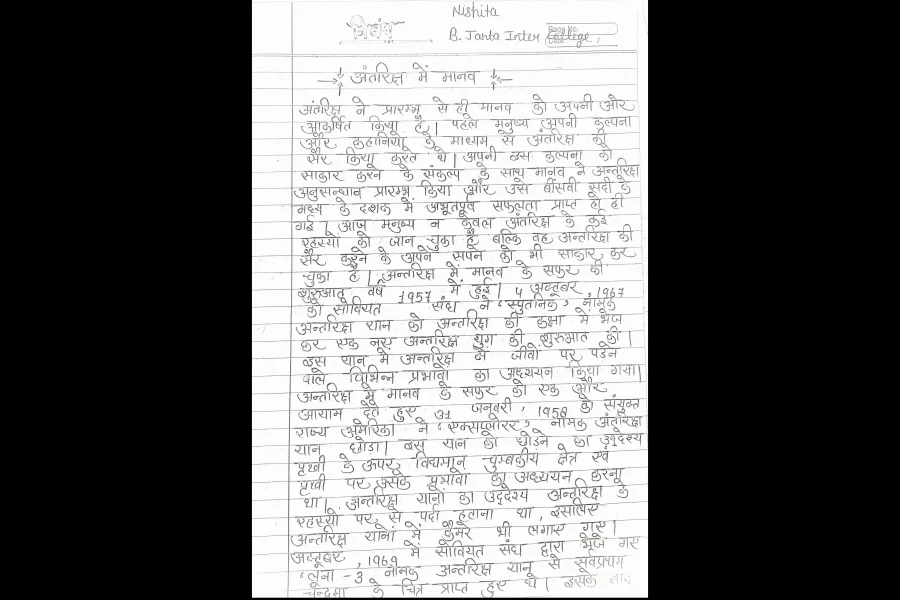 Nishita
निबंध
B. Janta Inter College,
Page No.
Date
अंतरिक्ष में मानव
अंतरिक्ष ने प्रारम्भ से ही मानव को अपनी ओर
आकर्षित किया है। पहले मनुष्य अपनी कल्पना
और कहानियों के माध्यम से अंतरिक्ष की
सैर किया करते थे। अपनी इस कल्पना को
साकार करने के संकल्प के साथ मानव ने अन्तरिक्ष
अनुसन्धान प्रारम्भ किया और उसे बीसवीं सदी के
मध्य के दशक में अभूतपूर्व सफलता प्राप्त हो ही
गई। आज मनुष्य न केवल अंतरिक्ष के कई
रहस्यों को जान चुका है बल्कि वह अन्तरिक्ष की
सैर करने के अपने सपने को भी साकार कर
चुका है। अन्तरिक्ष में मानव के सफर की
शुरुआत वर्ष 1957 में हुई। 4 अक्टूबर, 1967
को सोवियत संघ ने 'स्पुतनिक' नामक
अन्तरिक्ष यान को अन्तरिक्ष की कक्षा में भेज
कर एक नए अन्तरिक्ष युग की शुरुआत की।
इस यान में अन्तरिक्ष में जीवों पर पड़ने
वाले विभिन्न प्रभावों का अध्ययन किया गया।
अन्तरिक्ष में मानव के सफर को एक और
आयाम देते हुए 31 जनवरी, 1958 को संयुक्त
राज्य अमेरिका ने 'एक्सप्लोरर' नामक अंतरिक्ष
यान छोड़ा। इस यान को छोड़ने का उद्देश्य
पृथ्वी के ऊपर विद्यमान चुम्बकीय क्षेत्र एवं
पृथ्वी पर उसके प्रभावों का अध्ययन करना
था। अन्तरिक्ष यानों का उद्देश्य अन्तरिक्ष के
रहस्यों पर से पर्दा हटाना था, इसलिए
अन्तरिक्ष यानों में कैमरे भी लगाए गए।
अक्टूबर, 1969 में सोवियत संघ द्वारा भेजे गए
'लूना -3 नामक अन्तरिक्ष यान से सर्वप्रथम
चन्द्रमा के चित्र प्राप्त हुए थे। इसके बाद